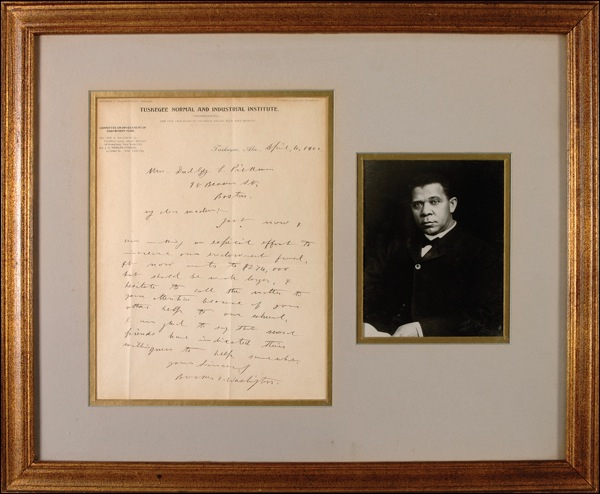 TUSKEGEE NORMAL AND INDUSTRIAL INSTITUTE.
Tuskegee, Ala., April, 4, 190
Mrs. Dudley L Pickman
98 Beacon St,
Boston.
My dear madam:
Just now I
am making an especial effort to
increase our endowment fund.
It now amts to $274,000
but should be much larger, &
hesitate to call the matter to
your attention because of your
other help to our school.
I am glad to say that several
friends have indicated their
willingness to help somewhat.
Yours Sincerely
Booker T. Washington.